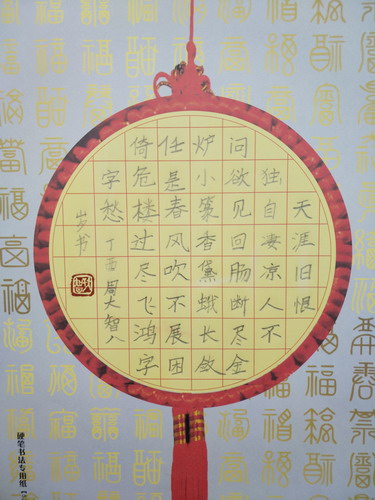 天涯旧恨
独自凄凉人不
问欲见回肠断尽金
炉小篆香黛蛾长敛
任是春风吹不展困
倚危楼过尽飞鸿字
字愁丁酉周大智八
岁书
硬笔书法专用纸